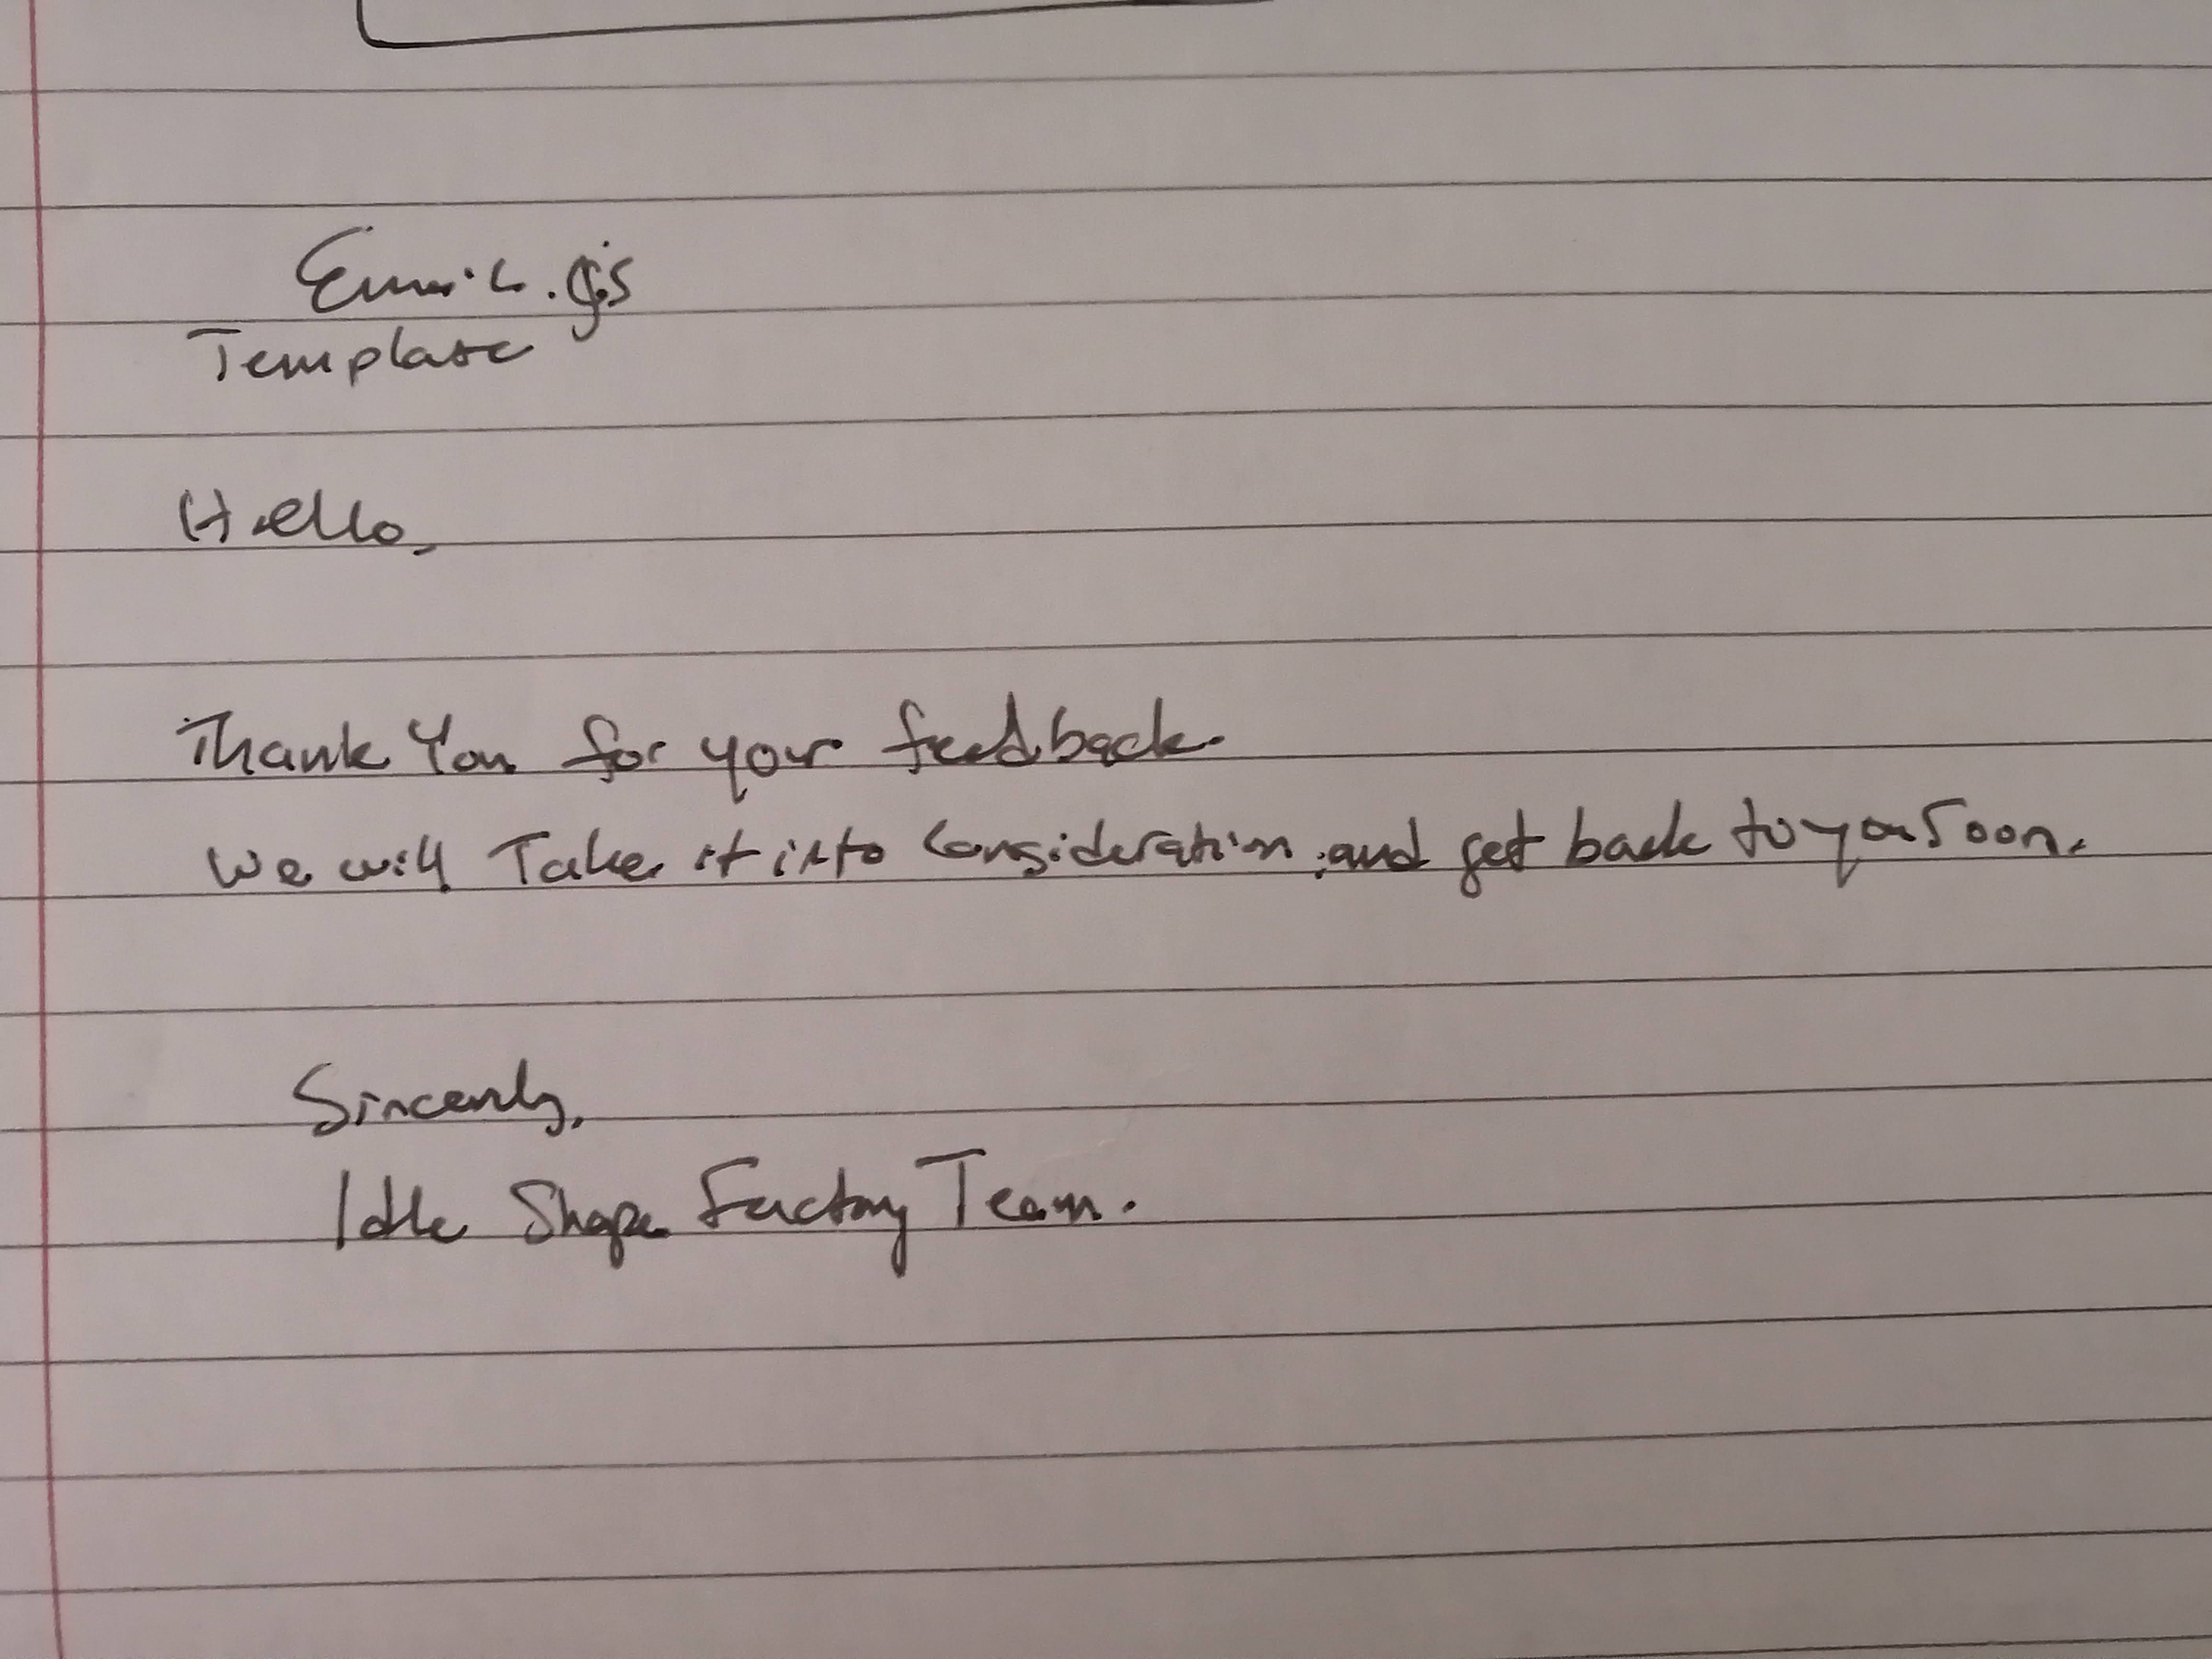 Email.js
Template
Hello,
Thank You for your feedback.
We will Take it into Consideration and get back to you Soon.
Sincerely,
Idle Shape Factory Team.